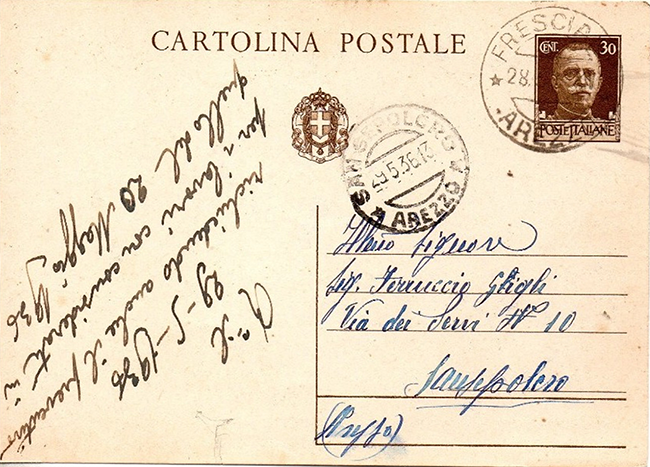 CARTOLINA POSTALE
CENT. 30
POSTE ITALIANE
28.
AREZZO
SANSEPOLCRO
29.5.36.13
AREZZO
Signore
Sig. Ferruccio Ghigli
Via dei Servi N° 10
Sansepolcro
(Arezzo)
R. il
29-5-1936
richiedendo anche il preventivo
per i lavori con considerati in
quello del 20 Maggio 1936